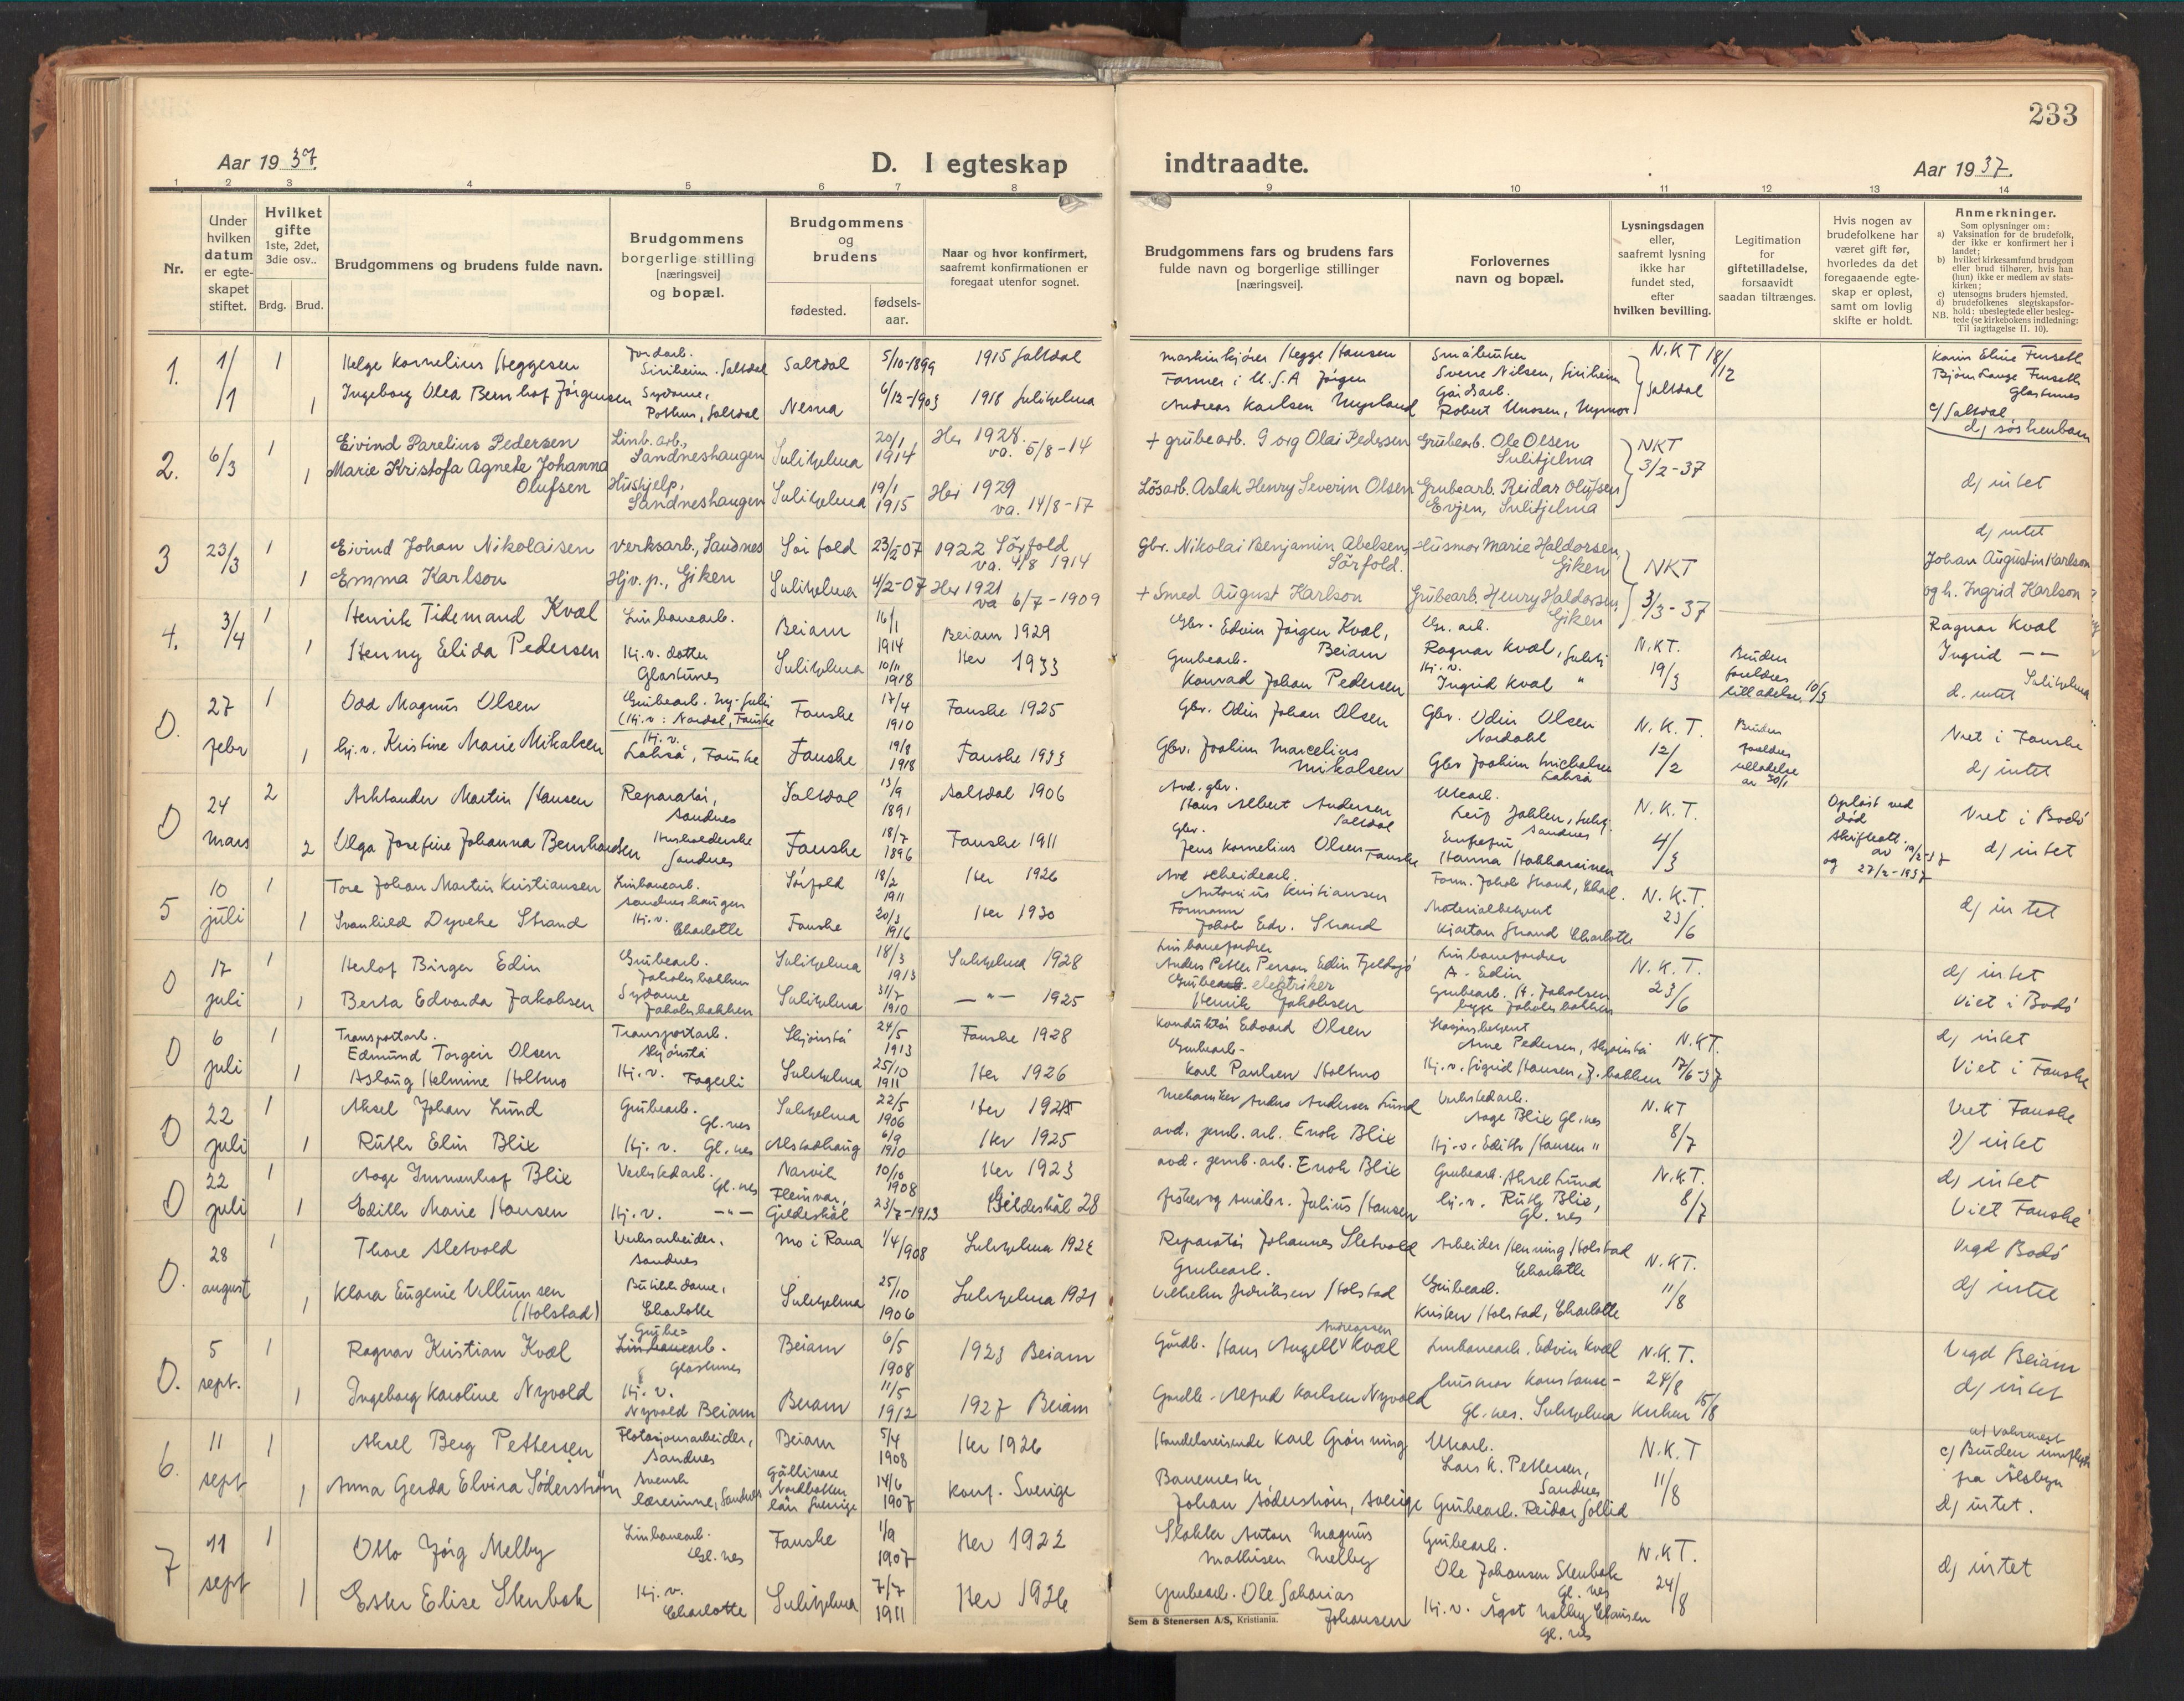 233
Aar 1937.
D. I egteskap
indtraadte.
Aar 1937.
1 2 3 4 5 6 7 8 9 10 11 12 13 14
Nr.
Under
hvilken
datum
er egte-
skapet
stiftet.
Hvilket
gifte
1ste, 2det,
3die osv..
Brdg. Brud.
Brudgommens og brudens fulde navn.
Brudgommens
borgerlige stilling
[næringsvei]
og bopæl.
Brudgommens
og
brudens
fødested.
fødsels-
aar.
Naar og hvor konfirmert,
saafremt konfirmationen er
foregaat utenfor sognet.
Brudgommens fars og brudens fars
fulde navn og borgerlige stillinger
[næringsvei].
Forlovernes
navn og bopæl.
Lysningsdagen
eller,
saafremt lysning
ikke har
fundet sted,
efter
hvilken bevilling.
Legitimation
for
giftetilladelse,
forsaavidt
saadan tiltrænges.
Hvis nogen av
brudefolkene har
været gift før,
hvorledes da det
foregaaende egte-
skap er opløst,
samt om lovlig
skifte er holdt.
Anmerkninger.
Som oplysning om:
a) Vaksination for de brudefolk,
der ikke er konfirmert her i
landet;
b) hvilket kirkesamfund brudgom
eller brud tilhører, hvis han
(hun) ikke er medlem av stats-
kirken;
c) utensogns bruders hjemsted.
d) brudefolkenes slegtskapsfor-
hold: ubeslegtede eller besleg-
NB. tede (se kirkebokens indledning:
Til iagttagelse II. 10).
1. 1/1 1 Helge Kornelius Heggesen
Jordarb.
Siriheim. Saltdal
Saltdal 5/10-1899 1915 Saltdal
Maskinkjører Hegge Hansen
Småbruker
Sverre Nilsen, Siriheim
N.K.T 18/12
Saltdal
Karin Eline Furseth
Bjørn Lange Furseth
Glastunes
1 Ingeborg Olea Bernhof Jörgensen
Sydame,
Pothus, Saltdal
Nesna 6/12-1903 1918 Sulitjelma
Farmer i U.S.A Jörgen
Andreas Karlsen Nymland
Gårdsarb.
Robert Unosen, Nymor
c/ Saltdal
d/ söskenbarn
2. 6/3 1 Eivind Parelius Pedersen
Linb. arb.
Sandneshaugen
Sulitjelma 20/1 1914
Her 1928.
va. 5/8-14
+ grubearb. Georg Olai Pedersen
Grubearb. Ole Olsen
Sulitjelma
NKT
3/2-37
1 Marie Kristofa Agnete Johanna
Olufsen
Hushjelp,
Sandneshaugen
Sulitjelma 19/1 1915
Her 1929
va. 14/8-17
Lösarb. Aslak Henry Severin Olsen
Grubearb. Reidar Olufsen
Evjen, Sulitjelma
d/ intet
3 23/3 1 Eivind Johan Nikolaisen
Verksarb., Sandnes
Sörfold 23/2 07
1922 Sörfold
va. 4/8 1914
Gbr. Nikolai Benjamin Abelsen,
Sörfold.
Husmor Marie Haldorsen,
Giken
NKT
d/ intet
Johan Augustin Karlson
1 Emma Karlson
Hjv.p., Giken
Sulitjelma 4/2-07
Her 1921
va 6/7-1909
+ Smed August Karlson
Grubearb. Henry Haldorsen,
Giken
3/3-37
og h. Ingrid Karlson
4. 3/4 1 Henrik Tidemand Kvæl
Linbanearb.
Beiarn 16/1 1914 Beiarn 1929
Gbr. Edvin Jörgen Kvæl,
Beiarn
Gr. arb.
Ragnar Kvæl, Sulitj
N.K.T.
19/3
Ragnar Kvæl
Ingrid — —
Sulitjelma
1 Henny Elida Pedersen
Hj.v. datter
Glastunes
Sulitjelma 10/11 1918 Her 1933
Grubearb.
Konrad Johan Pedersen
Hj.v.
Ingrid Kvæl "
Bruden
foreldres
tilladelse 10/3
d. intet
0. 27 febr 1 Odd Magnus Olsen
Grubearb. Ny-Sulis
(Hj.v: Nordal, Fauske
Fauske 17/4 1910 Fauske 1925
Gbr. Odin Johan Olsen
Gbr. Odin Olsen
Nordahl
N.K.T.
12/2
Bruden
foreldres
tilladelse
av 30/1
Viet i Fauske
1 hj.v. Kristine Marie Mikalsen
Hj.v.
Lakså, Fauske
Fauske 19/8 1918 Fauske 1933
Gbr. Joakim Marcelius
Mikalsen
Gbr Joakim Michalsen
Lakså
d/ intet
0 24 mars 2 Arklander Martin Hansen
Reparatör,
Sandnes
Saltdal 13/9 1891 Saltdal 1906
Avd. gbr.
Hans Albert Andersen
Saltdal
Leif Dahlen, Sulitj.
Sandnes
N.K.T.
4/3
Oplöst ved
död
Skifteatt.
av 19/2-37
og 27/2-1937
Viet i Bodö
2 Olga Josefine Johanna Bernhardsen
Husholderske
Sandnes
Fauske 18/7 1896 Fauske 1911
Gbr.
Jens Kornelius Olsen Fauske
Hanna Hakkarainen
d/ intet
5 10 juli 1 Tore Johan Martin Kristiansen
Linbanearb.
Sandneshaugen
Sörfold 18/2 1911 Her 1926
Avd skeidearb.
Antonius Kristiansen
Form. Jakob Strand, Charl.
N.K.T.
23/6
1 Svanhild Dyveke Strand
Hj.v.
Charlotte
Fauske 20/3 1916 Her 1930
Formann
Jakob Edv. Strand
Materialbetjent
Kjartan Strand Charlotte
d/ intet
0 17 juli 1 Herlof Birger Edin
Grubearb.
Jakobsbakken
Sulitjelma 18/3 1913 Sulitjelma 1928
Linbanefordrer
Anders Petter Person Edin Fjeldsjö
Linbanefordrer
A. Edin
N.K.T.
23/6
d/ intet
1 Berta Edvarda Jakobsen
Sydame
Jakobsbakken
Sulitjelma 31/7 1910 — " — 1925
Grubearb. elektriker
Henrik Jakobsen
Grubearb. H. Jakobsen
begge Jakobsbakken
Viet i Bodö
0 6 juli 1 Transportarb.
Edmund Torgeir Olsen
Transportarb.
Skjönstå
Skjönstå 24/5 1913 Fauske 1928
Konduktör Edvard Olsen
Stasjonsbetjent
Arne Pedersen, Skjönstå
N.K.T.
17/6-37
d/ intet
1 Aslaug Helmine Holtmo
Hj.v. Fagerli
Sulitjelma 25/10 1911 Her 1926
Grubearb.
Karl Paulsen Holtmo
Hj.v. Sigrid Hansen, J.bakken
Viet i Fauske
0 22 juli 1 Aksel Johan Lund
Grubearb.
Gl.nes
Sulitjelma 22/5 1906 Her 1925
Mekaniker Anders Andersen Lund
Verkstedarb.
Aage Blix Gl.nes
N.KT
8/7
Viet Fauske
1 Ruth Elin Blix
Hj.v. Gl.nes
Alstadhaug 6/9 1910 Her 1925
avd. jernb. arb. Enok Blix
Hj.v. Edith Hansen "
d/ intet
0 22 juli 1 Aage Immenhof Blix
Verkstedarb.
Gl.nes
Narvik 10/10 1908 Her 1923
avd. jernb. arb. Enok Blix
Grubearb. Aksel Lund
N.K.T.
8/7
d/ intet
1 Edith Marie Hansen
Hj.v. — " —
Fleinvær,
Gildeskål 23/7-1913 Gildeskål 28
Fisker og småbr. Julius Hansen
hj.v. Ruth Blix,
Gl.nes
Viet Fauske
0. 28 august 1 Thore Sletvold
Verksarbeider.
Sandnes
Mo i Rana 1/4/908 Sulitjelma 1923
Reparatör Johannes Sletvold
Arbeider Henning Holstad
Charlotte
N.K.T.
11/8
Vigd Bodö
1 Klara Eugenie Villumsen
(Holstad)
Butikkdame,
Charlotte
Sulitjelma 25/10 1906 Sulitjelma 1921
Grubearb.
Vilhelm Fredriksen Holstad
Grubearb.
Kristen Holstad, Charlotte
d/ intet
0. 5 sept. 1 Ragnar Kristian Kvæl
Grube-
Linbanearb.
Glastunes
Beiarn 6/5 1908 1923 Beiarn
Gårdb. Hans Angell Andreassen Kvæl
Linbanearb. Edvin Kvæl
N.K.T.
24/8
Vigd Beiarn
1 Ingeborg Karoline Nyvold
Hj.v.
Nyvold Beiarn
Beiarn 11/5 1912 1927 Beiarn
Gårdb. Alfred Karlsen Nyvold
husmor Konstanse -
Gl.nes. Sulitjelma
15/8
d/ intet
6. 11 sept 1 Aksel Berg Pettersen
Flotasjonsarbeider,
Sandnes
Beiarn 5/4 1908 Her 1926
Handelsreisende Karl Grönning
Lars K. Pettersen,
Sandnes
N.K.T
11/8
c/ Bruden innflyttet
fra Älvsbyn
1 Anna Gerda Elvira Söderström
Svensk
lærerinne, Sandnes
Gällivare
Nordbotten
län Sverige
14/6 1907 Konf. Sverige
Banemester
Johan Söderström, Sverige
Grubearb. Reidar Jollid
d/ intet.
7 11 sept 1 Otto Jörg Melby
Linbanearb.
Gl.nes
Fauske 1/9 1907 Her 1922
Slakter Anton Magnus
Mathisen Melby
Grubearb.
Ole Johansen Stenbak
Gl.nes
N.K.T.
24/8
1 Ester Elise Stenbak
Hj.v.
Charlotte
Sulitjelma 7/7 1911 Her 1926
Grubearb. Ole Sakarias
Johansen
Hj.v. Ågot Melby Clausen
Gl.nes
d/ intet
Sem & Stenersen A/S, Kristiania.